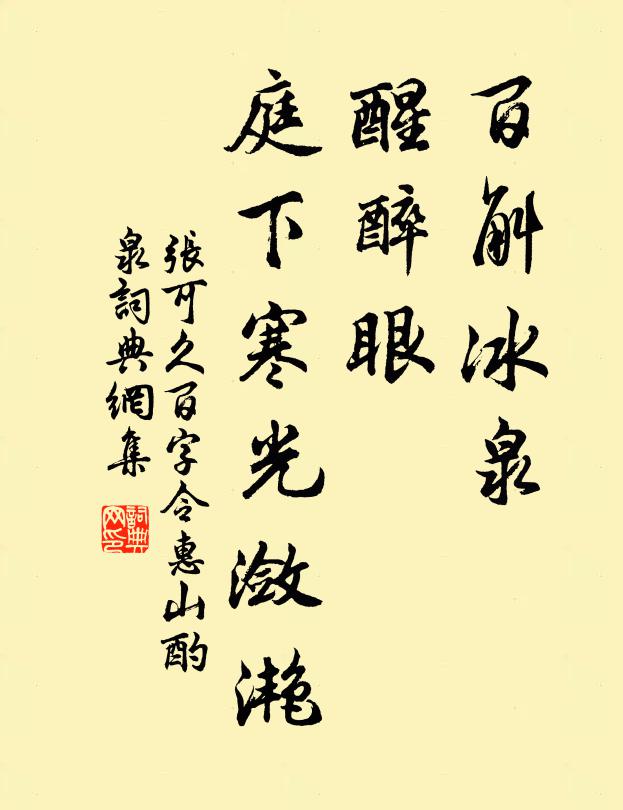 百斛冰泉
醒醉眼
庭下寒光瀲灩
張可久百字令惠山酌
泉詞典網集
詞典网印